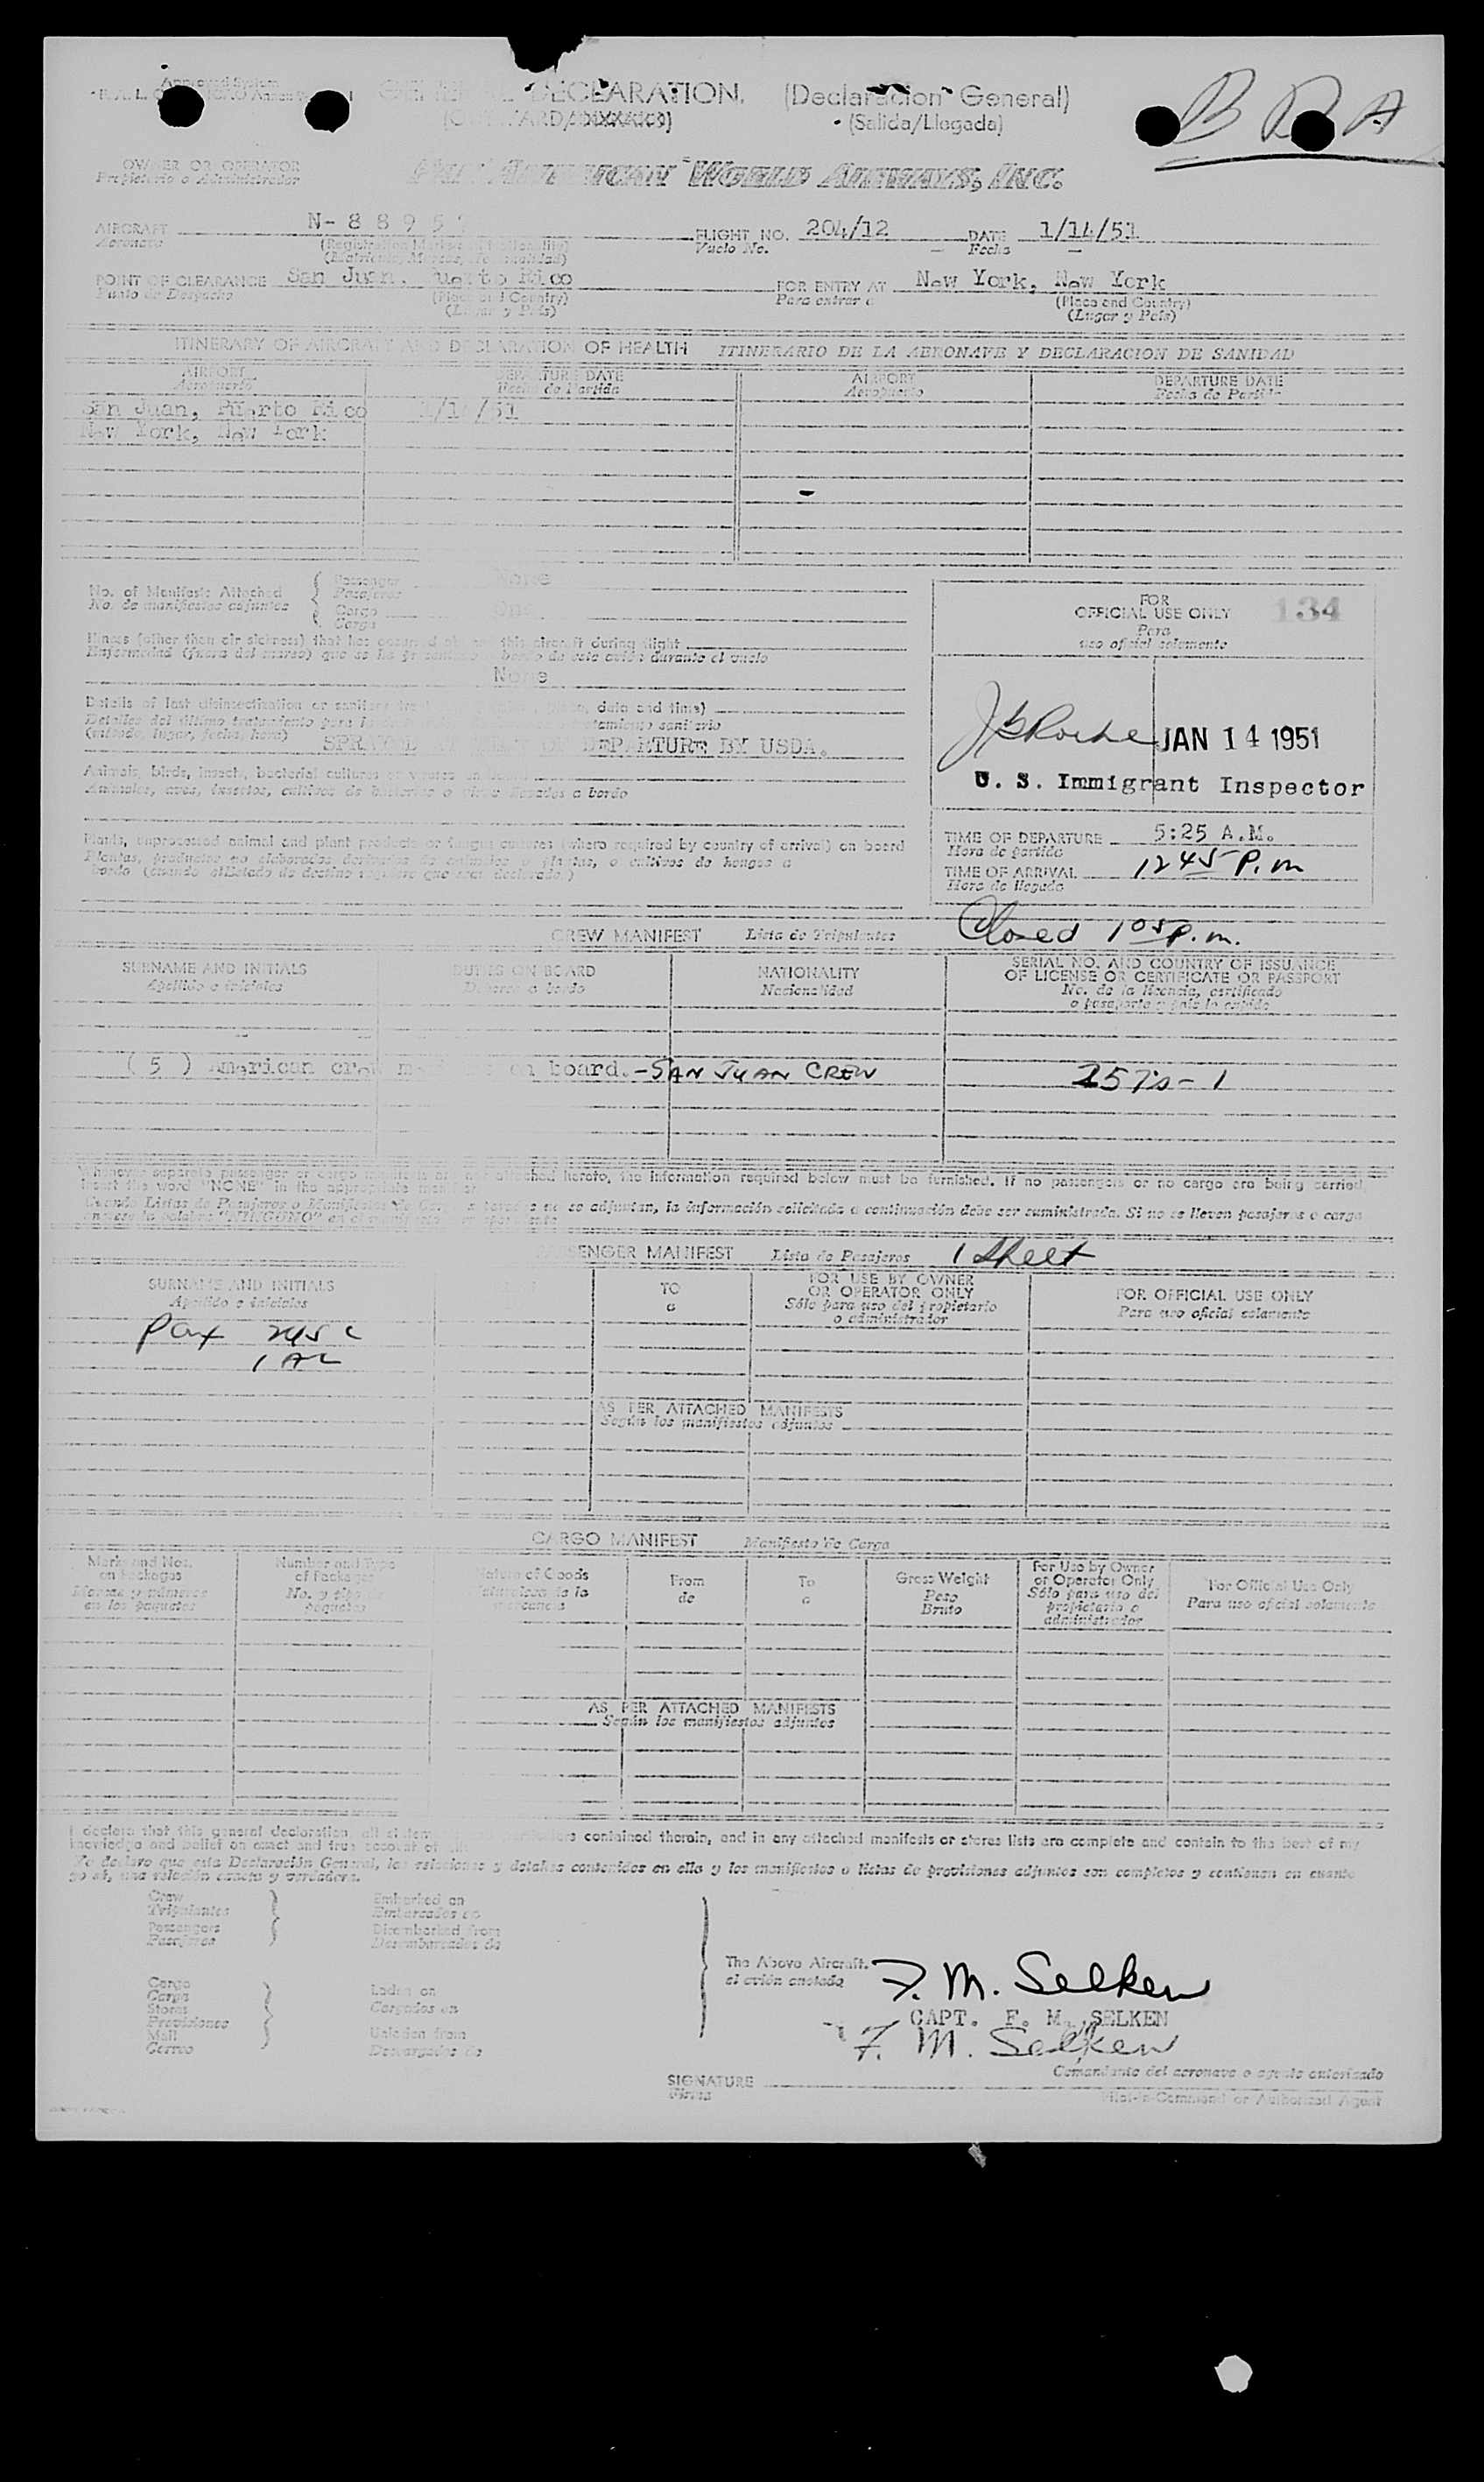 GENERAL DECLARATION. (Declaracion General)
(OUTWARD/XXXXXX) (Salida/Llegada)
B R A
OWNER OR OPERATOR
Propietario o Administrador
PAN AMERICAN WORLD AIRWAYS, INC.
AIRCRAFT N- 8 8 9 5 FLIGHT NO. 204/12 DATE 1/14/51
Aeronave Vuelo No. Fecha
(Registration Marks and Nationality)
POINT OF CLEARANCE San Juan, Puerto Rico FOR ENTRY AT New York, New York
Punto de Despacho (Place and Country) Para entrar a (Place and Country)
(Lugar y Pais) (Lugar y Pais)
ITINERARY OF AIRCRAFT AND DECLARATION OF HEALTH ITINERARIO DE LA AERONAVE Y DECLARACION DE SANIDAD
AIRPORT DEPARTURE DATE AIRPORT DEPARTURE DATE
Aeropuerto Fecha de Partida Aeropuerto Fecha de Partida
San Juan, Puerto Rico 1/14/51
New York, New York
No. of Manifests Attached Passenger None
No. de manifiestos adjuntos Pasajeros
Cargo One
Carga
FOR
OFFICIAL USE ONLY 134
Para
uso oficial solamente
Illness (other than air sickness) that has occurred aboard this aircraft during flight
Enfermedad (fuera del mareo) que se ha presentado a bordo de este avión durante el vuelo
None
Details of last disinsectization or sanitary treatment place, date and time)
Detalles del último tratamiento para tratamiento sanitario
(método, lugar, fecha, hora) SPRAYED AT TIME OF DEPARTURE BY USDA.
JAN 14 1951
U. S. Immigrant Inspector
Animals, birds, insects, bacterial cultures or viruses on board
Animales, aves, insectos, cultivos de bacterias o virus llevados a bordo
Plants, unprocessed animal and plant products or fungus cultures (where required by country of arrival) on board
Plantas, productos no elaborados derivados de animales o plantas, o cultivos de hongos a
bordo (cuando el Estado de destino requiere que sean declarados.)
TIME OF DEPARTURE 5:25 A.M.
Hora de partida
TIME OF ARRIVAL 1245 P.m
Hora de llegada
Closed 105 p.m.
CREW MANIFEST Lista de Tripulantes
SURNAME AND INITIALS DUTIES ON BOARD NATIONALITY SERIAL NO. AND COUNTRY OF ISSUANCE
Apellido e iniciales Deberes a bordo Nacionalidad OF LICENSE OR CERTIFICATE OR PASSPORT
No. de la licencia, certificado
o pasaporte y pais lo expide
( 5 ) American crew members on board. - SAN JUAN CREW
Whenever separate passenger or cargo manifest is not attached hereto, the information required below must be furnished. If no passengers or no cargo are being carried,
insert the word "NONE" in the appropriate manifest
Cuando Listas de Pasajeros o Manifiestos de Carga separados no se adjuntan, la información solicitada a continuación debe ser suministrada. Si no se llevan pasajeros o carga
anótese la palabra "NINGUNO" en el manifiesto correspondiente
PASSENGER MANIFEST Lista de Pasajeros 1 Sheet
SURNAME AND INITIALS TO FOR USE BY OWNER FOR OFFICIAL USE ONLY
Apellido e iniciales a OR OPERATOR ONLY Para uso oficial solamente
Sólo para uso del propietario
o administrador
Pax
AS PER ATTACHED MANIFESTS
Según los manifiestos adjuntos
CARGO MANIFEST Manifiesto de Carga
Marks and Nos. Number and Type Nature of Goods From To Gross Weight For Use by Owner For Official Use Only
on Packages of Packages Naturaleza de la de a Peso or Operator Only Para uso oficial solamente
Marcas y números No. y tipo de mercancía Bruto Sólo para uso del
en los paquetes Paquetes propietario o
administrador
AS PER ATTACHED MANIFESTS
Según los manifiestos adjuntos
I declare that this general declaration, all statements and particulars contained therein, and in any attached manifests or stores lists are complete and contain to the best of my
knowledge and belief an exact and true account of
Yo declaro que esta Declaración General, las relaciones y detalles contenidos en ella y los manifiestos o listas de provisiones adjuntos son completos y contienen en cuanto
yo sé, una relación exacta y verdadera.
Crew Embarked on
Tripulantes Embarcados en
Passengers Disembarked from
Pasajeros Desembarcados de
The Above Aircraft.
el avión anotado
Cargo Laden on
Carga Cargados en
Stores
Provisiones
Mail Unladen from
Correo Descargados de
F. M. Selken
CAPT. F. M. SELKEN
F. M. Selken
SIGNATURE Comandante del aeronave o agente autorizado
Firma Pilot-in-Command or Authorized Agent